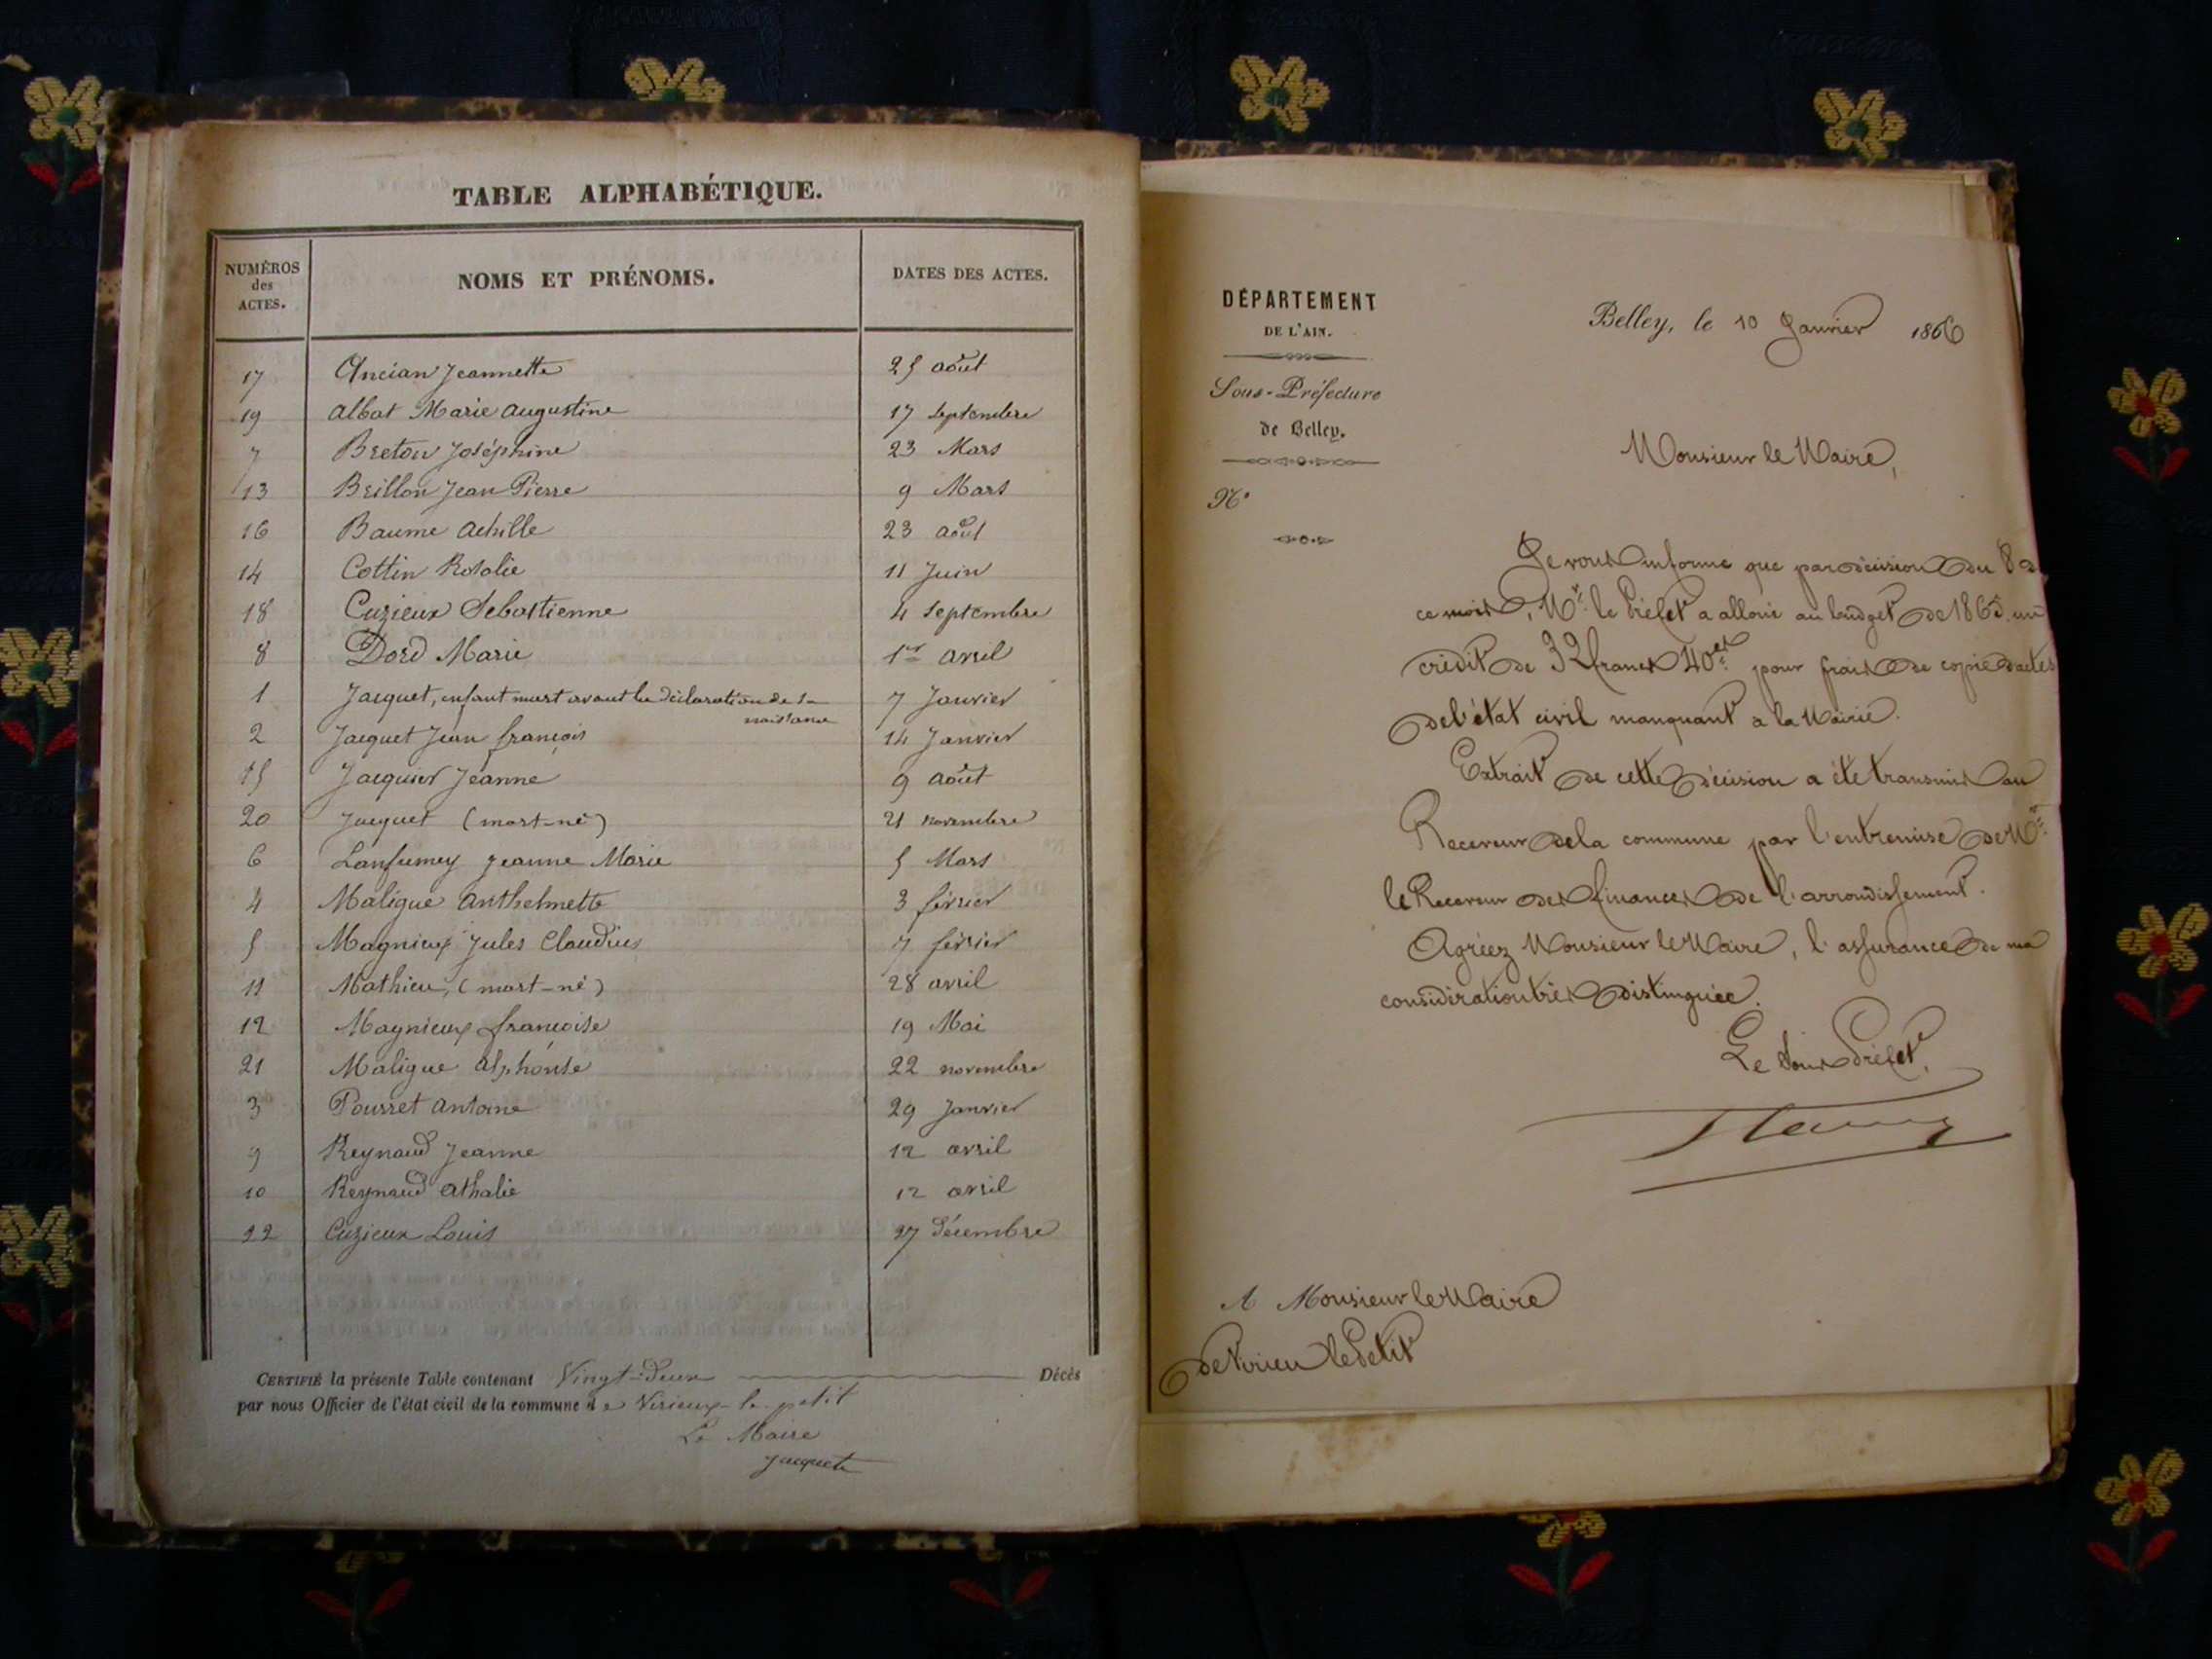 TABLE ALPHABÉTIQUE.
NUMÉROS des ACTES. NOMS ET PRÉNOMS. DATES DES ACTES.
17 Ancian Jeannette 25 août
19 Albat Marie Augustine 17 septembre
7 Breton Joséphine 23 Mars
13 Brillon Jean Pierre 9 Mars
16 Baume Achille 23 août
14 Cottin Rosalie 11 Juin
18 Cuzieux Sebastienne 4 septembre
8 Dord Marie 1er avril
1 Jacquet, enfant mort avant la déclaration de sa naissance 7 Janvier
2 Jacquet Jean françois 14 Janvier
15 Jacquier Jeanne 9 août
20 Jacquet (mort-né) 21 novembre
6 Lanfumey Jeanne Marie 5 Mars
4 Maligue Anthelmette 3 février
5 Magnieux Jules Claudius 7 février
11 Mathieu, (mort-né) 28 avril
12 Magnieux françoise 19 Mai
21 Maligue Alphonse 22 novembre
3 Pousset Antoine 29 Janvier
9 Reynaud Jeanne 12 avril
10 Reynaud Athalie 12 avril
22 Cuzieux Louis 27 décembre
CERTIFIÉ la présente Table contenant Vingt-deux Décès
par nous Officier de l'état civil de la commune de Virieux-le-petit
Le Maire
Jacquet
DÉPARTEMENT
DE L'AIN.
Sous-Préfecture
de Belley.
N°
Belley, le 10 Janvier 1866
Monsieur le Maire,
Je vous informe que par décision du 8 d
ce mois, Mr. le Préfet a alloué au budget de 1865, un
crédit de 32 francs 40 ces. pour frais de copie d'actes
de l'état civil manquant a la Mairie.
Extrait de cette décision a été transmis au
Receveur de la commune par l'entremise de Mr.
le Receveur des finances de l'arrondissement.
Agréez Monsieur le Maire, l'assurance de ma
considération très distinguée.
Le Sous Préfet,
A Monsieur le Maire
de Virieu le Petit